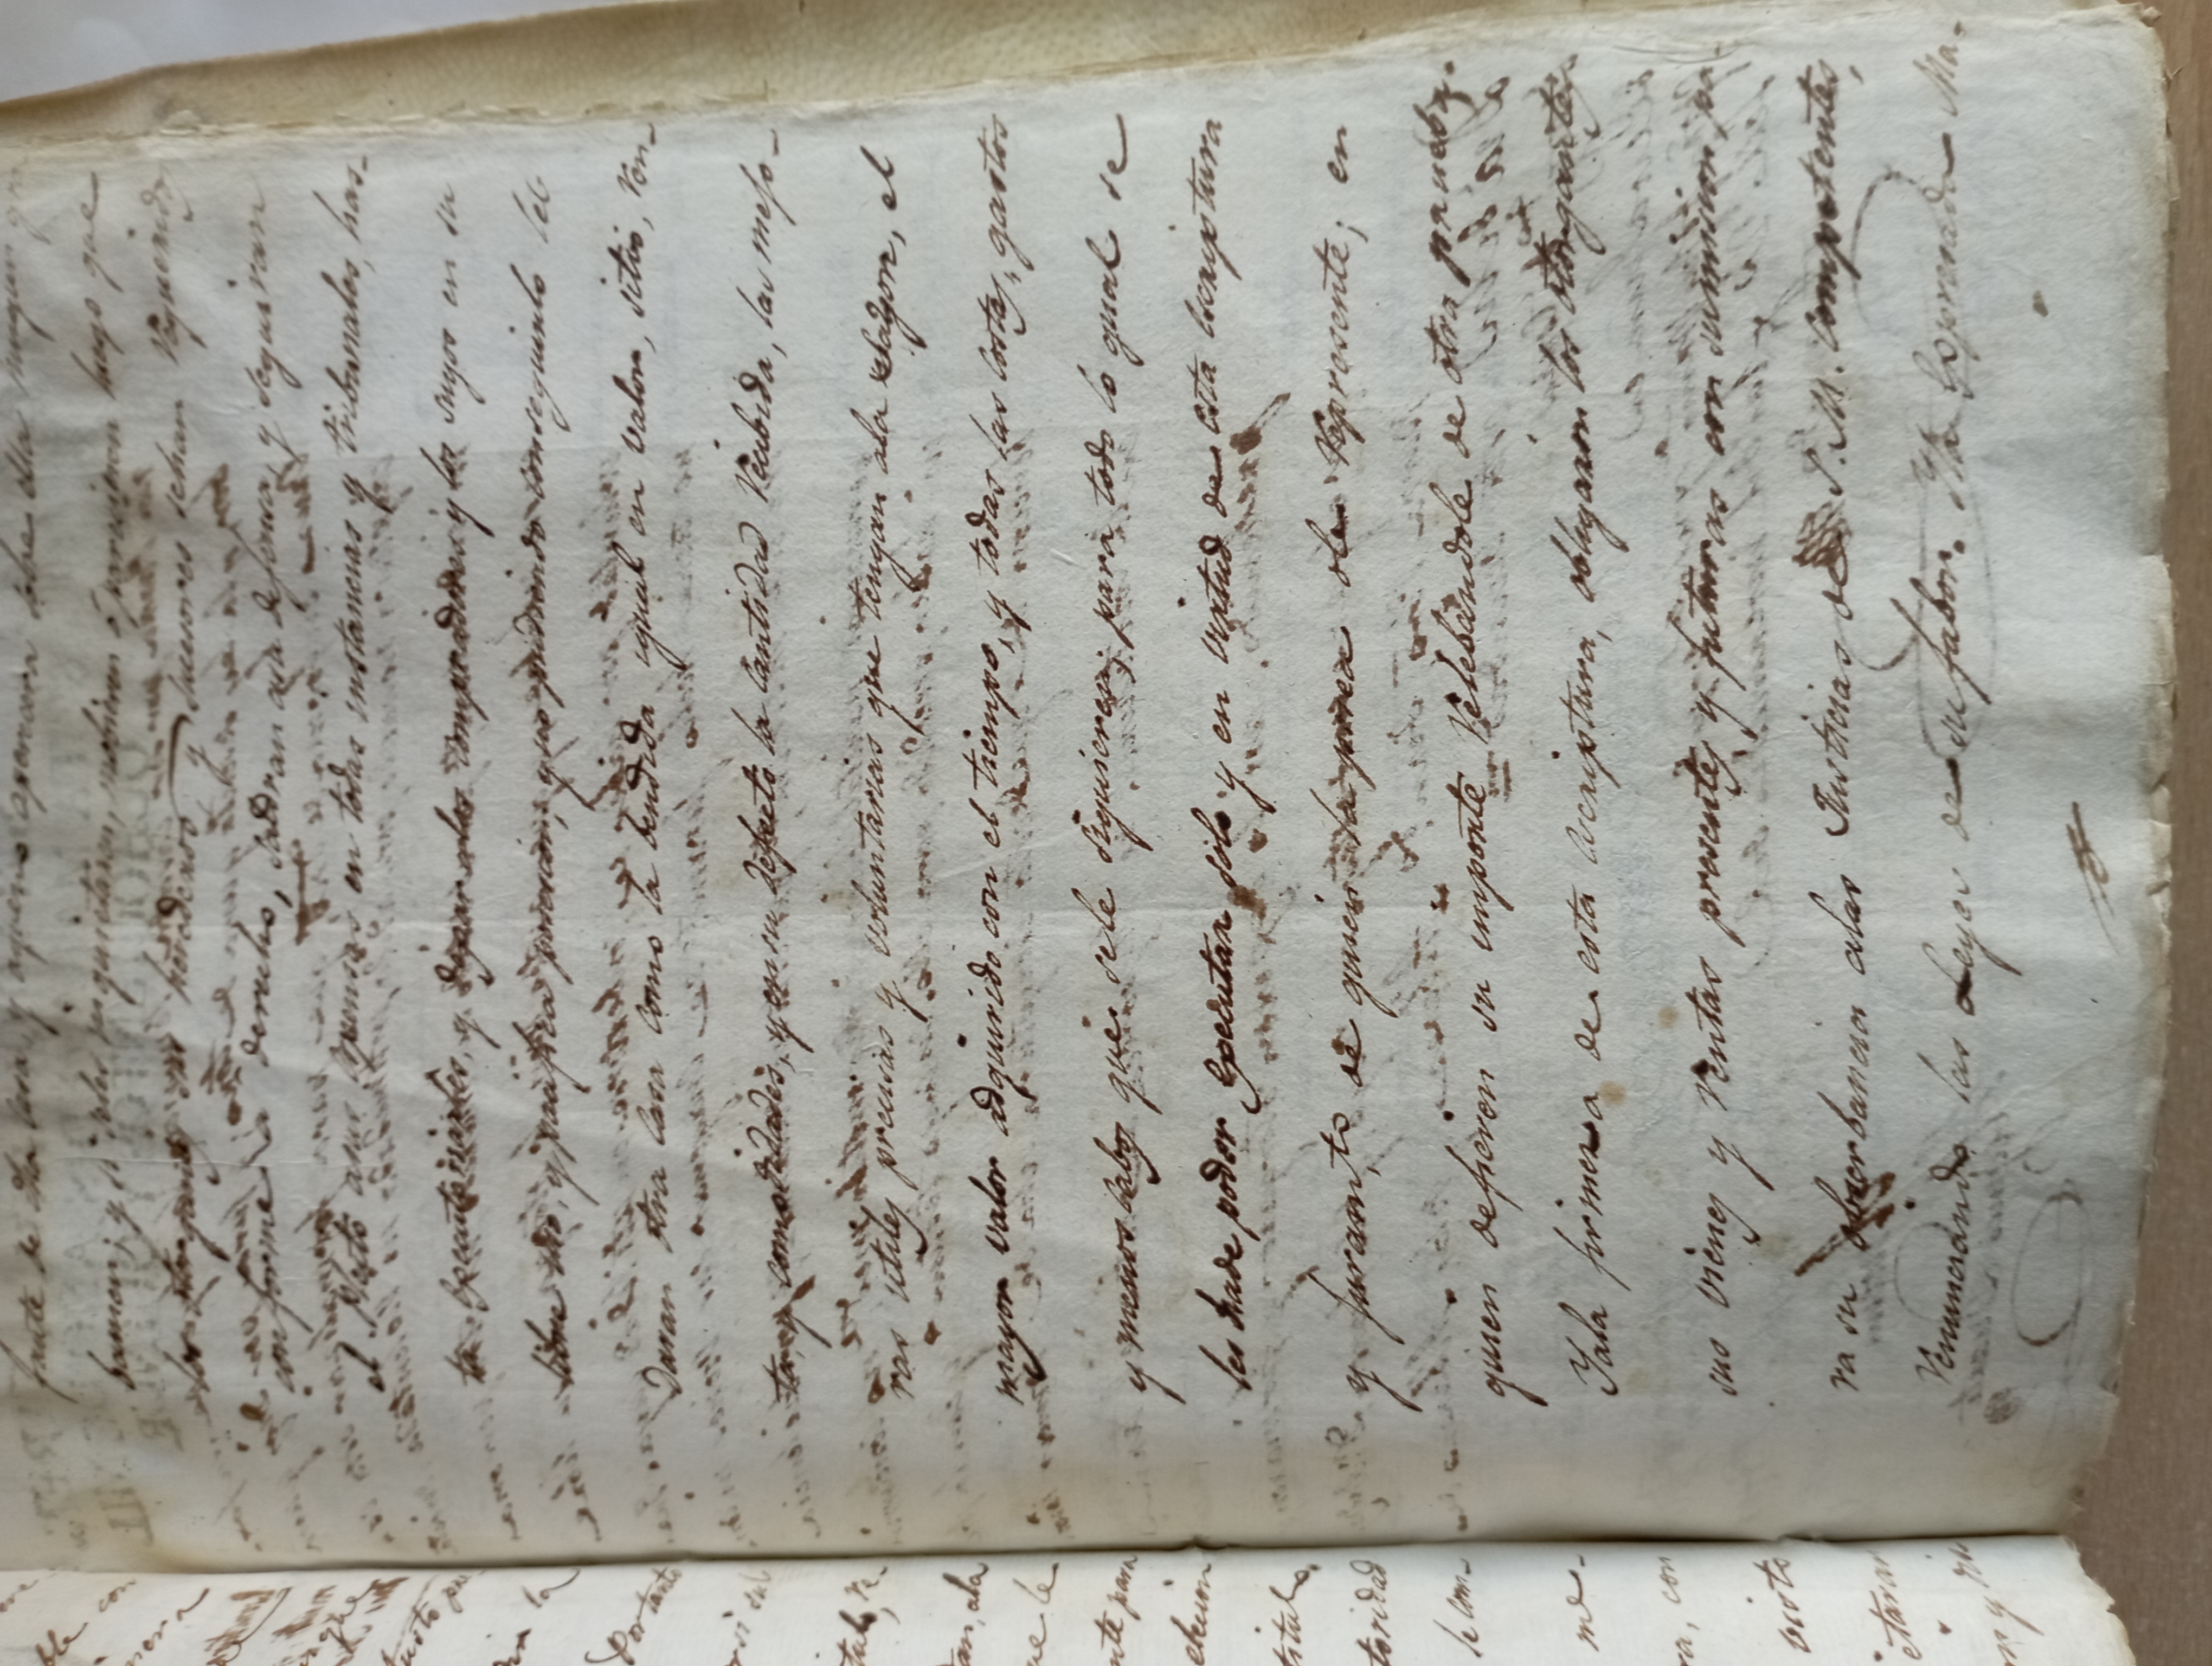 fante de esta casa, y aqueno aparecera sobre ella ningun gra
bamen; y si seles inquietaren, mobieren ó parecieren luego que
los otorgantes sus herederos y sucesores sehan requerido
conforme a derecho, saldran asu defensa, y seguiran
el Pleito asus Espensas en todas instancias y tribunales, has-
ta Egecutoriarles, y dejar alos compradores y los suyos en su
libre uso, y pacifica posecion; y no pudiendo conseguirlo les
Daran otra Casa como la bendida igual en valor, sitio, ren-
ta, y comodidades, y en su defecto la Cantidad recibida, las mejo-
ras utiles precisas y voluntarias que tengan ala sazon, el
mayor valor adquirido con el tiempo, y todas las costas, gastos
y menos cabos que sele siguieren; para todo lo qual se
les hade poder Egecutar solo y en virtud de esta escriptura
y juram.to de quien la posea ole represente; en
quien defieren su importe relebandole de otra prueba.
Yala firmeza de esta escriptura, obligaron los otorgantes
sus vienes y rentas presentes y futuras con sumision pa-
ra su obserbancia alas Justicias de S. M. Competentes,
renunciando las Leyes de su fabor. Yla Espresada Ma-